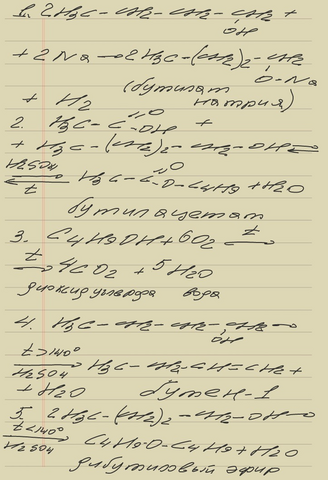 1. 2H₃C – CH₂ – CH₂ – CH₂ +
OH
+ 2Na → 2H₃C – (CH₂)₂ – CH₂
O – Na
(бутилат
+ H₂ натрия)
2. H₃C – C =O –OH +
+ H₃C – (CH₂)₂ – CH₂ – OH ⇌
H₂SO₄ ⇌ t H₃C – C =O –O – C₄H₉ + H₂O
бутилацетат
3. C₄H₉OH + 6O₂ t →
t → 4CO₂ + 5H₂O
диоксид углерода вода
4. H₃C – CH₂ – CH₂ – CH₂ →
OH
t>140° H₂SO₄ → H₃C – CH₂ – CH = CH₂ +
+ H₂O бутен-1
5. 2H₃C – (CH₂)₂ – CH₂ – OH →
t<140° H₂SO₄ → C₄H₉ – O – C₄H₉ + H₂O
дибутиловый эфир